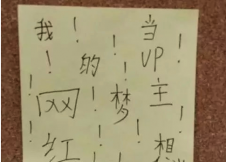 我的梦想！
当UP主！
网红！